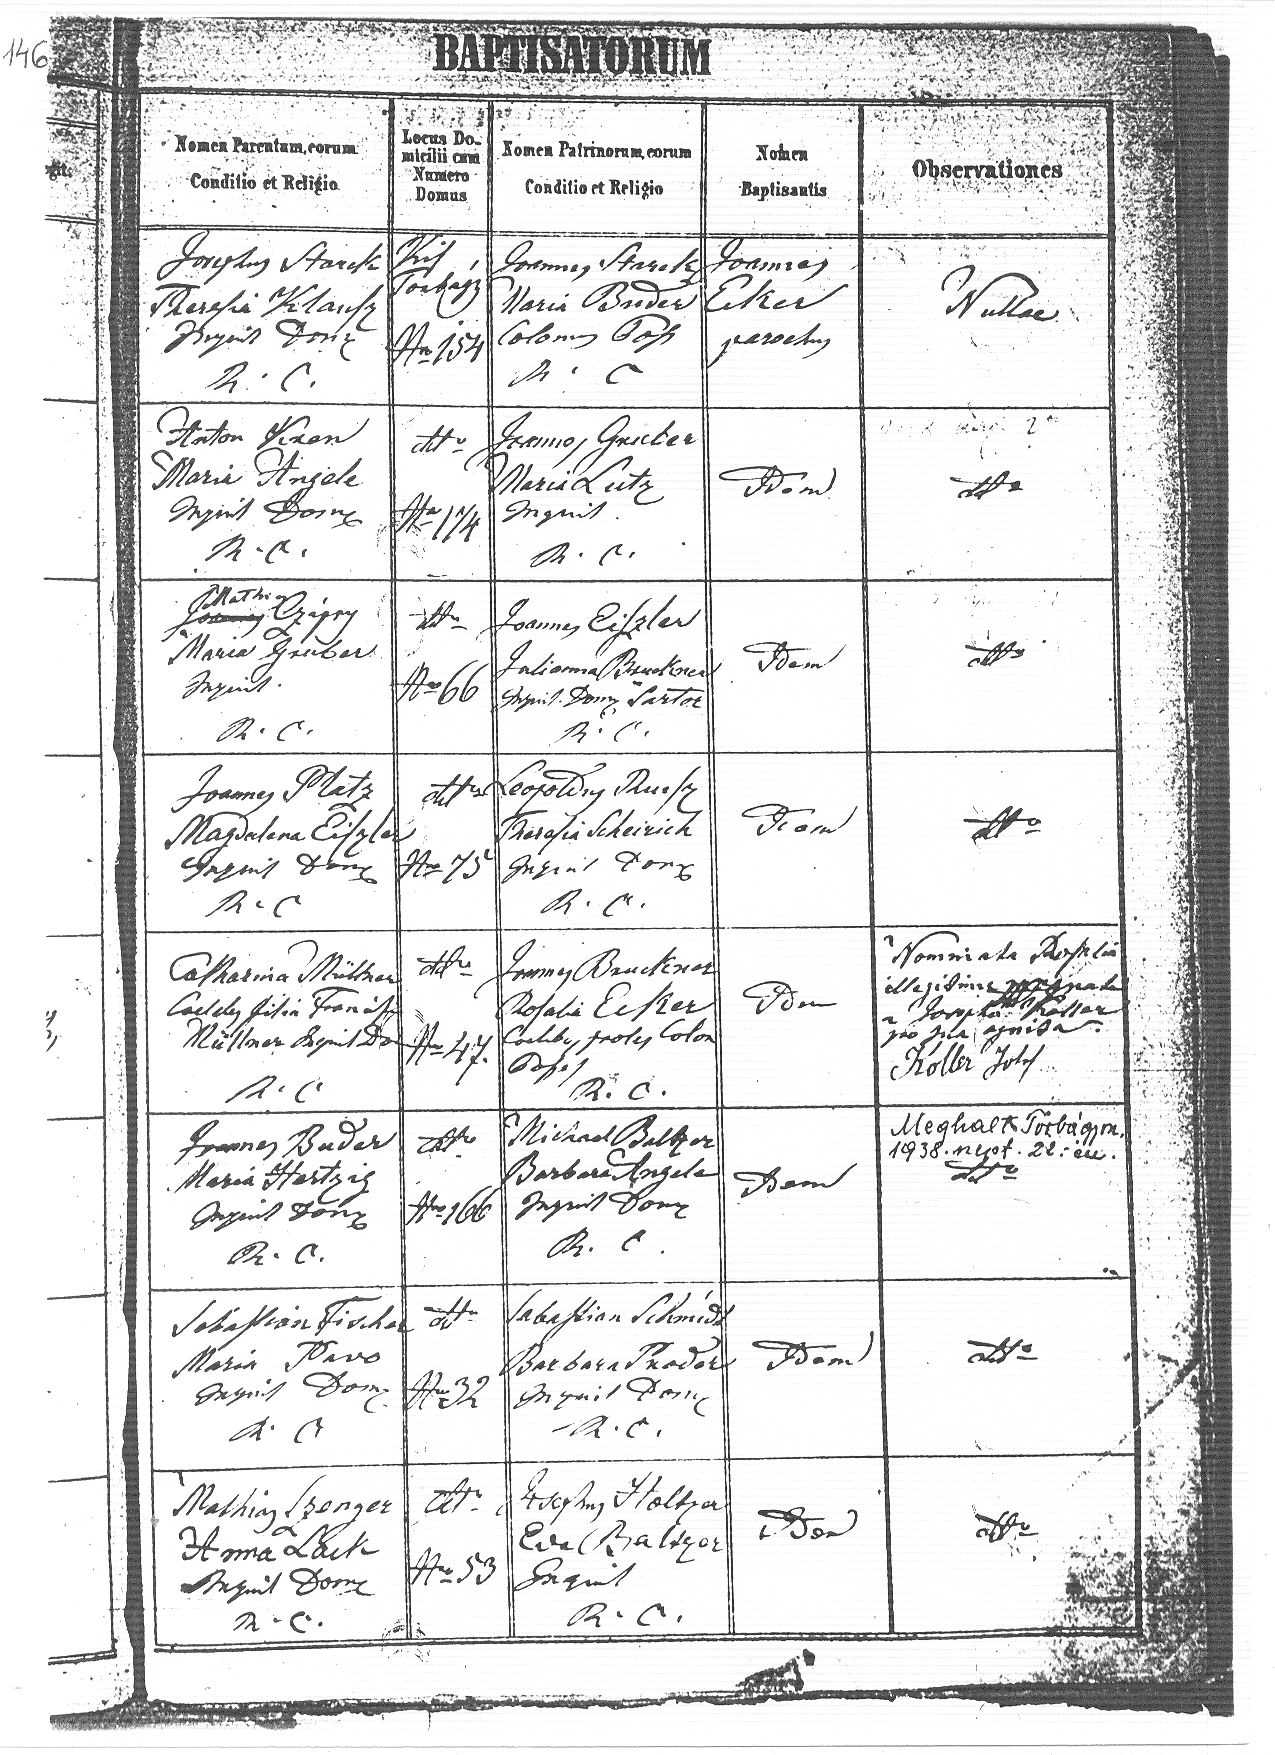 146
BAPTISATORUM
Nomen Parentum, eorum
Conditio et Religio
Locus Do-
micilii cum
Numero
Domus
Nomen Patrinorum, eorum
Conditio et Religio
Nomen
Baptisantis
Observationes
Josephus Starck
Theresia Klausz
Inquil Domz
R. C.
Kis
Torbágy
Nro 154
Joannes Starck
Maria Buder
Colonus Poss
R. C
Joannes
Ecker
parochus
Nullae
Anton Kran
Maria Angele
Inquil Domz
R. C.
dtto
Nro 174
Joannes Gruber
Maria Lutz
Inquil.
R. C.
Idem
dtto
Mathias
Joannes Czágny
Maria Gruber
Inquil.
R. C.
dtto
Nro 66
Joannes Eiszler
Julianna Bruckner
Inquil. Domz Sartor
R. C.
Idem
dtto
Joannes Platz
Magdalena Eiszler
Inquil Domz
R. C
dtto
Nro 75
Leopoldus Ruesz
Theresia Scheirich
Inquil Domz
R. C.
Idem
dtto
Catharina Müllner
Caelebs filia Francis
Müllner Inquil Do
R. C
dtto
Nro 47.
Joannes Bruckner
Rosalia Ecker
Coelebs proles Colon
R. C.
Idem
Nominata Rosalia
illegitima
a Josepho Koller
pro filia agnita.
Koller Josef
Joannes Buder
Maria Hertzig
Inquil Domz
R. C.
dtto
Nro 166
Michael Baltzer
Barbara Angele
Inquil Domz
R. C.
Idem
Meghalt Törbágyon.
1938. szept. 22-én.
dtto
Sebastian Fischer
Maria Pavo
Inquil Domz
R. C
dtto
Nro 32
Sebastian Schmidt
Barbara Prader
Inquil Domz
R. C.
Idem
dtto
Mathias Szenger
Anna Lack
Inquil Domz
R. C.
dtto
Nro 53
Josephus Holtzer
Eva Baltzer
Inquil
R. C.
Idem
dtto